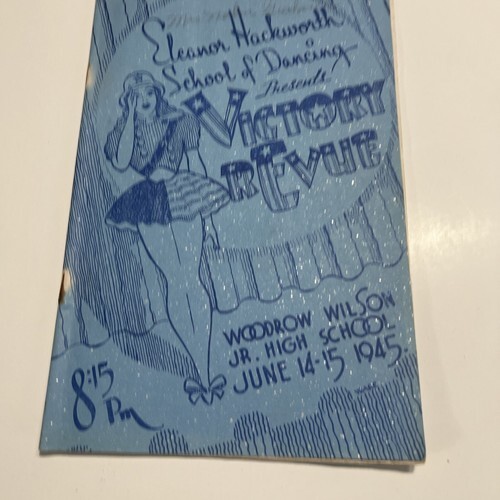 Eleanor Hackworth
School of Dancing
Presents
VICTORY
REVUE
WOODROW WILSON
JR. HIGH SCHOOL
JUNE 14-15 1945.
8:15
Pm